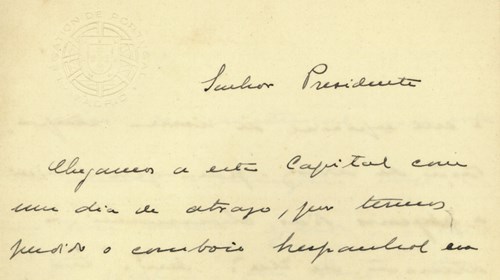 Senhor Presidente
Chegamos a esta Capital com
um dia de atrazo, por termos
perdido o comboio hespanhol em